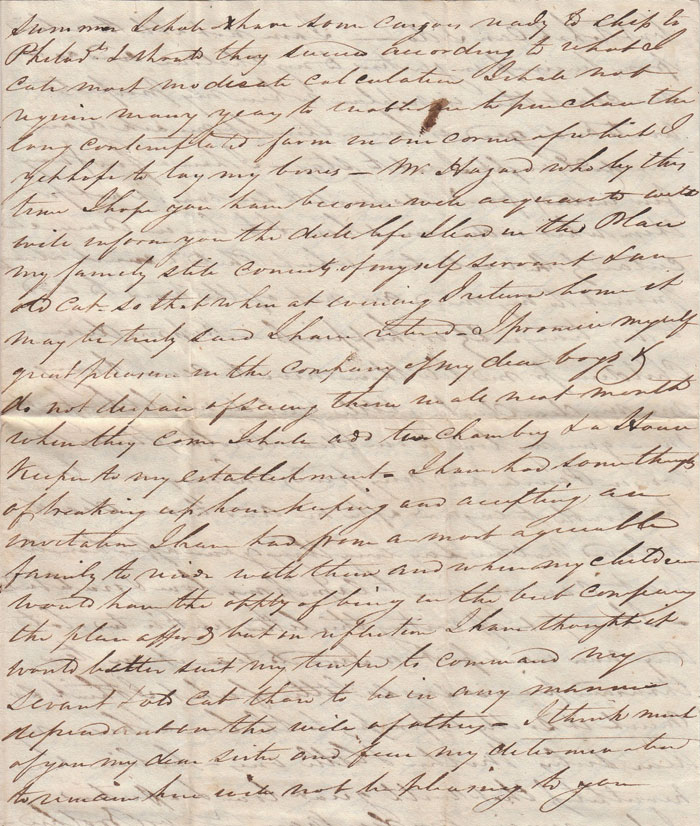 summer I shall have some cargoes ready to ship to
Philad.ª & should they succeed according to what I
call most moderate calculation I shall not
require many years to enable me to purchase the
long contemplated farm in one corner of which I
yet hope to lay my bones – Mr. Hazard who by this
time I hope you have become well acquainted with
will inform you the life I lead in this Place
my family still consists of myself servant & an
old cat – so that when at evening I return home it
may be truly said I have retired – I promise myself
great pleasure in the company of my dear boys &
do not despair of seeing them
when they come I shall add two chambers & a House
Keeper to my establishment – I have had some thoughts
of breaking up housekeeping and accepting an
invitation I have had from a most agreeable
family to reside with them and where my children
would have the oppty of being in the best company
the place affords but on reflection I have thought it
would better suit my temper to command my
servant & old cat than to be in any manner
dependent on the will of others – I think much
of you my dear sister and fear my determination
to remain here will not be pleasing to you